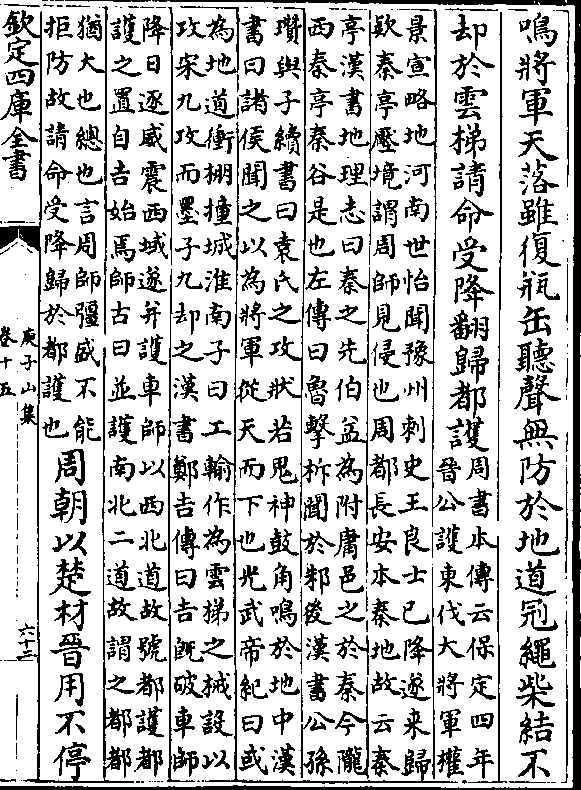 鳴將軍天落雖復瓶缶聽聲無防於地道冠繩柴結不
却於雲梯請命受降翻歸都護
周書本傳云保定四年
晉公護東伐大將軍權
景宣略地河南世怡聞豫州刺史王良士已降遂来歸
欵秦亭壓境謂周師見侵也周都長安本秦地故云秦
亭漢書地理志曰秦之先伯益為附庸邑之於秦今隴
西秦亭秦谷是也左傳曰魯擊柝聞於邾後漢書公孫
瓚與子續書曰袁氏之攻狀若鬼神鼓角鳴於地中漢
書曰諸侯聞之以為將軍從天而下也光武帝紀曰或
為地道衝棚撞城淮南子曰工輸作為雲梯之械設以
攻宋九攻而墨子九却之漢書鄭吉傳曰吉既破車師
降日逐威震西城遂并護車師以西北道故號都護都
護之置自吉始焉師古曰並護南北二道故謂之都都
猶大也總也言周師彊盛不能
拒防故請命受降歸於都護也
周朝以楚材晉用不停
欽定四庫全書
庾子山集
卷十五
六十三